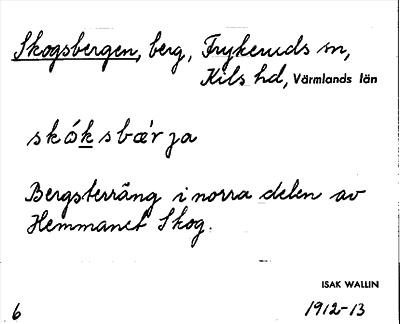 Skogsbergen, berg, Frykeruds sn,
Kils hd, Värmlands län
skóksbæ̀rja
Bergsterräng i norra delen av
Hemmanet Skog.
ISAK WALLIN
6 1912-13